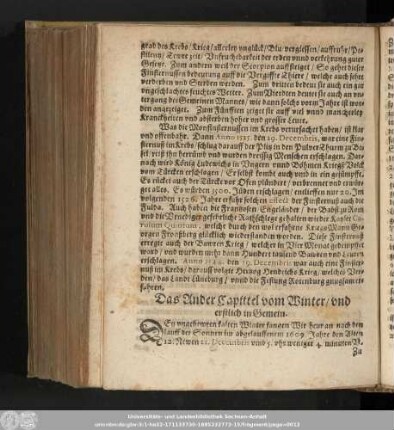 grad des Krebs / Kriea / allerley vnglück / Blu vergiessen / auffruhr / Pe-
stilentz / Tewre zeit / Vnfruchtbarkeit der erden vnnd verkehrung guter
Gesetze. Zum andern weil der Scorpion auffsteiget / So gehet dieser
Finsternussen bedeutung auff die Vergiffte Thiere / welche auch sehr
verderben und Sterben werden. Zum dritten bedeut sie auch ein gar
vngeschlachtes feuchtes Wetter. Zum Vierdten deutet sie auch an ver-
irrung des Gemeinen Mannes / wie dann solchs vorm Jahre ist wor-
den angezeiget. Zum Fünfften zeiget sie auff viel vnnd mancherley
Kranckheiten vnd absterben hoher vnd grosser Leute.
Was die Meerfinsternussen im Krebs verursachet haben / ist klar
vnd offenbahr. Dann Anno 1525. den 29. Decembris, war eine Fin-
sternuß im Krebs / schlug darauff der Plitz in den Pulver Thurm zu Ba-
sel
nach wird König Ludewich in Vngern vnnd Böhmen Kriegs Volck
vom Türcken erschlagen / Er selbst kombt auch vmb in ein gesümpffe.
Es rücket auch der Türcke vor Ofen plündert / verbrennet vnd erwür-
get alles. Es würden 3500. Jüden erschlagen / entlieffen nur 20. Im
volgenden 1526. Jahre erfuhr solchen effect der Finsternuß auch die
Fulda. Auch haben die Frantzosen Engeländer / der Babst zu Rom
vnd die Venediger gefehrliche Rathschläge gehalten wieder Kayser Ca-
rolum Quintum, welche durch den wolerfahrne Kriegs Mann Ge-
orgen Frondsberg glücklich wiederstanden worden. Diese Finsternuß
erregte auch der Bawren Krieg / welcher in Vier Monat gedempffet
ward / vnd wurden mehr dann Hundert tausend Bawren vnd Leuten
erschlagen. Anno 1544. den 29. Decembris war auch eine Finster-
nuß im Krebs / darauff volgte Hertzog Henderichs Krieg, welches Ver-
den / das Landt Lüneburg / vnnd die Festung Rotenburg gnugsam er-
fahren.
Das Ander Capittel vom Winter / vnd
erstlich in Gemein.
DEn vngehewren kalten Winter fangen Wir heur an nach dem
lauff der Sonnen im abgelauffenem 1609. Jahre den Alten
12. Newen 22. Decembris vmb 5. vhr weniger 4. minuten N.
Zu
Universitäts- und Landesbibliothek Sachsen-Anhalt
urn:nbn:de:gbv:3:1-